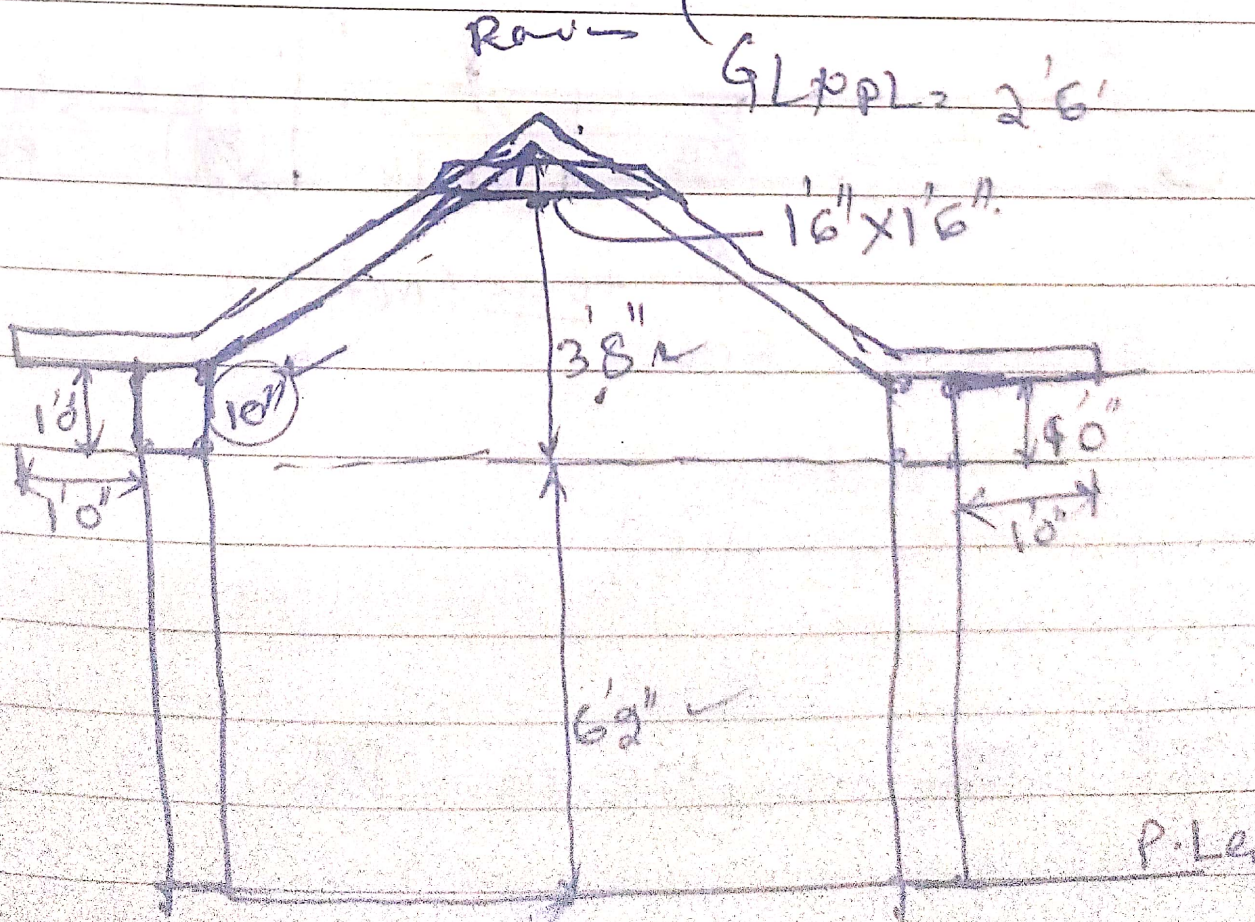 GL to PL = 2'6'
1'6" x 1'6".
3'8"
1'0"
10"
1'0"
1'0"
1'0"
6'9"
P.Le